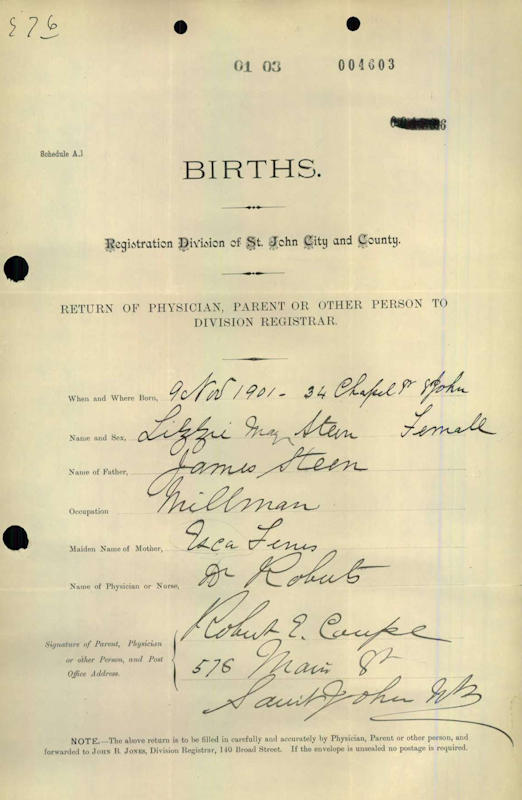 576
01 03 004603
Schedule A.1
BIRTHS.
Registration Division of St. John City and County.
RETURN OF PHYSICIAN, PARENT OR OTHER PERSON TO
DIVISION REGISTRAR.
When and Where Born, 9 Nov 1901 - 34 Chapel St St John
Name and Sex, Lizzie May Steen Female
Name of Father, James Steen
Occupation Millman
Maiden Name of Mother,
Name of Physician or Nurse, Dr Roberts
Robert E. Coupe
Signature of Parent, Physician
or other Person, and Post
Office Address.
576 Main St
Saint John NB
NOTE.—The above return is to be filled in carefully and accurately by Physician, Parent or other person, and
forwarded to JOHN B. JONES, Division Registrar, 140 Broad Street. If the envelope is unsealed no postage is required.